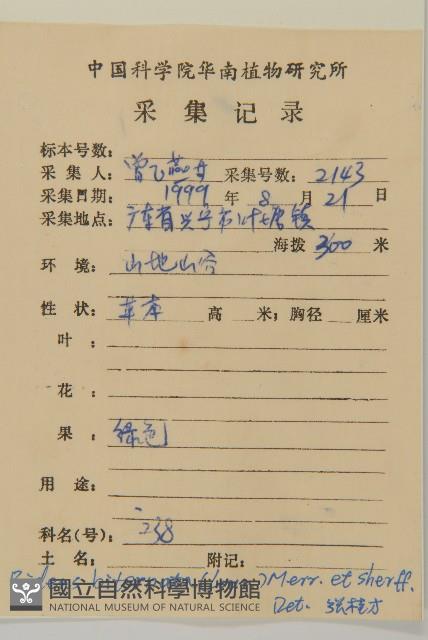 中国科学院华南植物研究所
采集记录
标本号数：
采集人：曾飞燕 采集号数：2143
采集日期：1999 年 8 月 21 日
采集地点：广东省兴宁市叶塘镇
海拨 300 米
环境：山地山谷
性状：草本 高 米；胸径 厘米
叶：
花：
果：绿色
用途：
科名(号)：238
土名： 附记：
Bidens biternata (Lour.) Merr. et Sherff.
Det. 张桂才
國立自然科學博物館
NATIONAL MUSEUM OF NATURAL SCIENCE